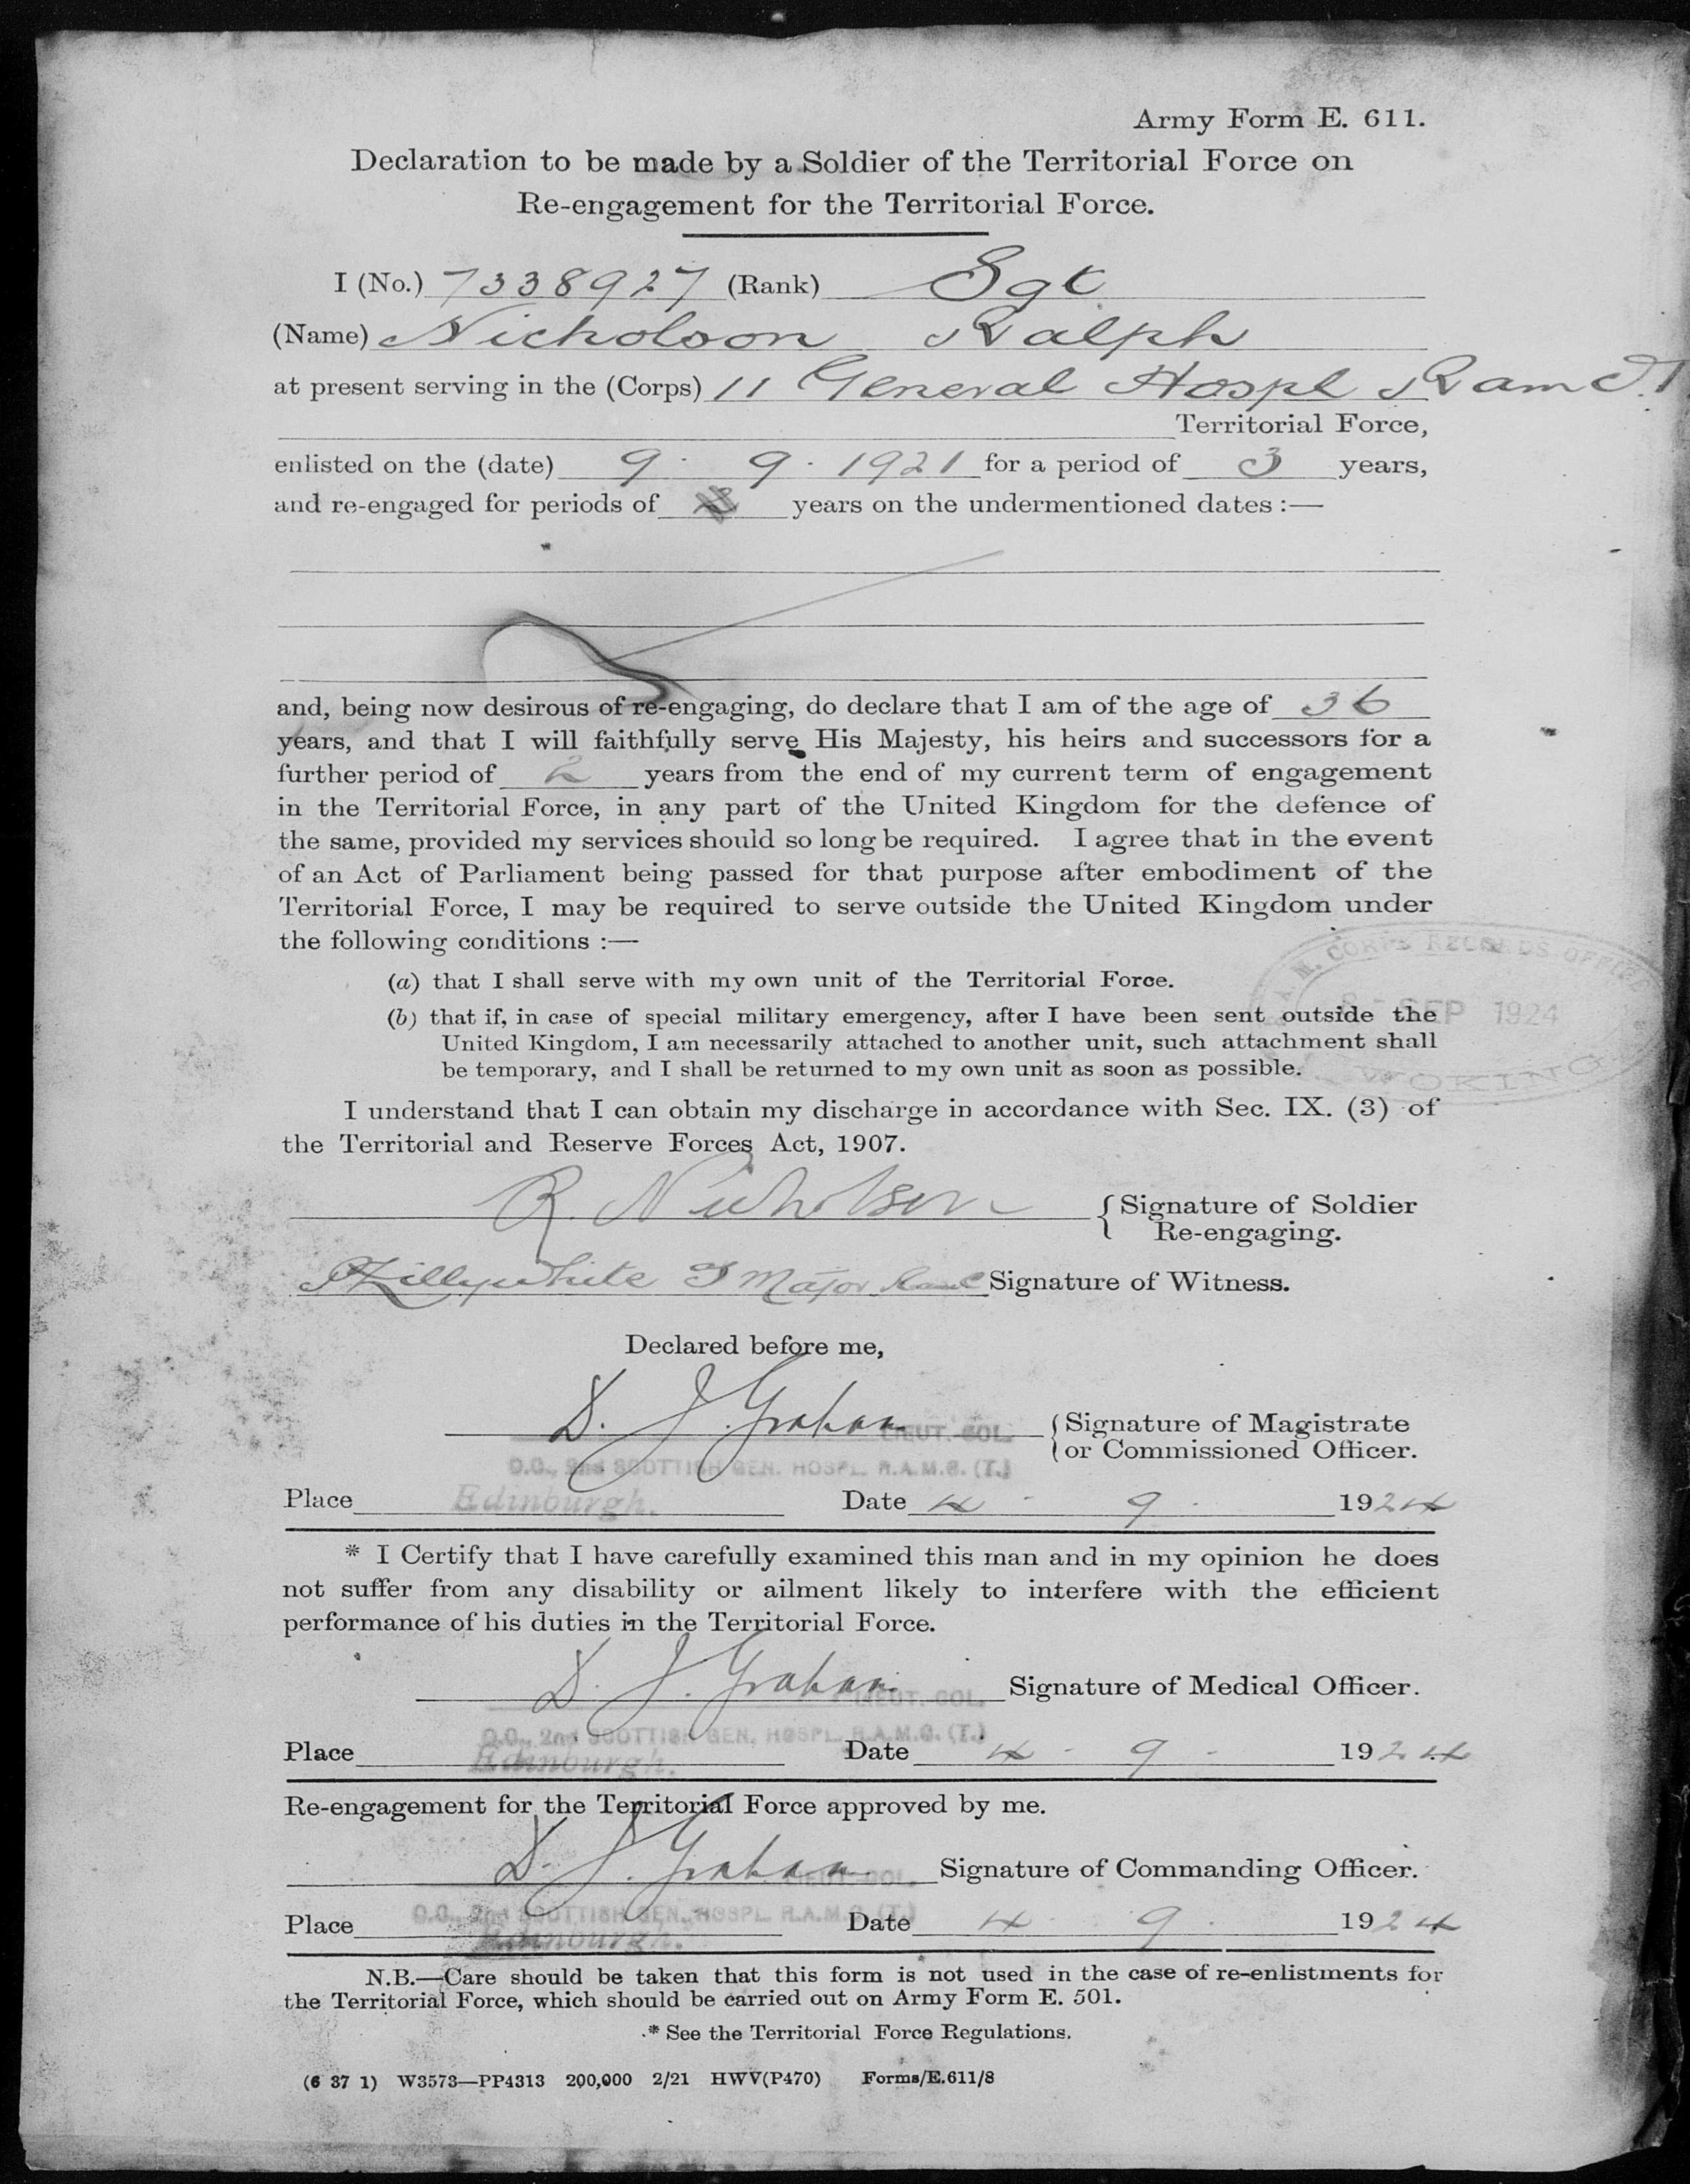 Army Form E. 611.
Declaration to be made by a Soldier of the Territorial Force on
Re-engagement for the Territorial Force.
I (No.) 7338927 (Rank) Sgt
(Name) Nicholson Ralph
at present serving in the (Corps) 11 General Hospl Ramc T.
Territorial Force,
enlisted on the (date) 9 · 9 · 1921 for a period of 3 years,
and re-engaged for periods of years on the undermentioned dates :—
and, being now desirous of re-engaging, do declare that I am of the age of 36
years, and that I will faithfully serve His Majesty, his heirs and successors for a
further period of 2 years from the end of my current term of engagement
in the Territorial Force, in any part of the United Kingdom for the defence of
the same, provided my services should so long be required. I agree that in the event
of an Act of Parliament being passed for that purpose after embodiment of the
Territorial Force, I may be required to serve outside the United Kingdom under
the following conditions :—
R.A.M. CORPS RECORDS OFFICE
(a) that I shall serve with my own unit of the Territorial Force.
8 - SEP 1924
(b) that if, in case of special military emergency, after I have been sent outside the
United Kingdom, I am necessarily attached to another unit, such attachment shall
be temporary, and I shall be returned to my own unit as soon as possible.
WOKING
I understand that I can obtain my discharge in accordance with Sec. IX. (3) of
the Territorial and Reserve Forces Act, 1907.
R. Nicholson { Signature of Soldier
Re-engaging.
Lillywhite S Major Ramc Signature of Witness.
Declared before me,
D. J. Graham LIEUT.-COL. { Signature of Magistrate
or Commissioned Officer.
O.C., 2nd SCOTTISH GEN. HOSPL. R.A.M.C. (T.)
Place Edinburgh. Date 4 · 9 · 1924
* I Certify that I have carefully examined this man and in my opinion he does
not suffer from any disability or ailment likely to interfere with the efficient
performance of his duties in the Territorial Force.
D. J. Graham LIEUT.-COL. Signature of Medical Officer.
O.C., 2nd SCOTTISH GEN. HOSPL. R.A.M.C. (T.)
Place Edinburgh. Date 4 - 9 - 1924
Re-engagement for the Territorial Force approved by me.
D. J. Graham LIEUT.-COL. Signature of Commanding Officer.
O.C., 2nd SCOTTISH GEN. HOSPL. R.A.M.C. (T.)
Place Edinburgh. Date 4 · 9 · 1924
N.B.—Care should be taken that this form is not used in the case of re-enlistments for
the Territorial Force, which should be carried out on Army Form E. 501.
* See the Territorial Force Regulations.
(6 37 1) W3573—PP4313 200,000 2/21 HWV(P470) Forms/E.611/8